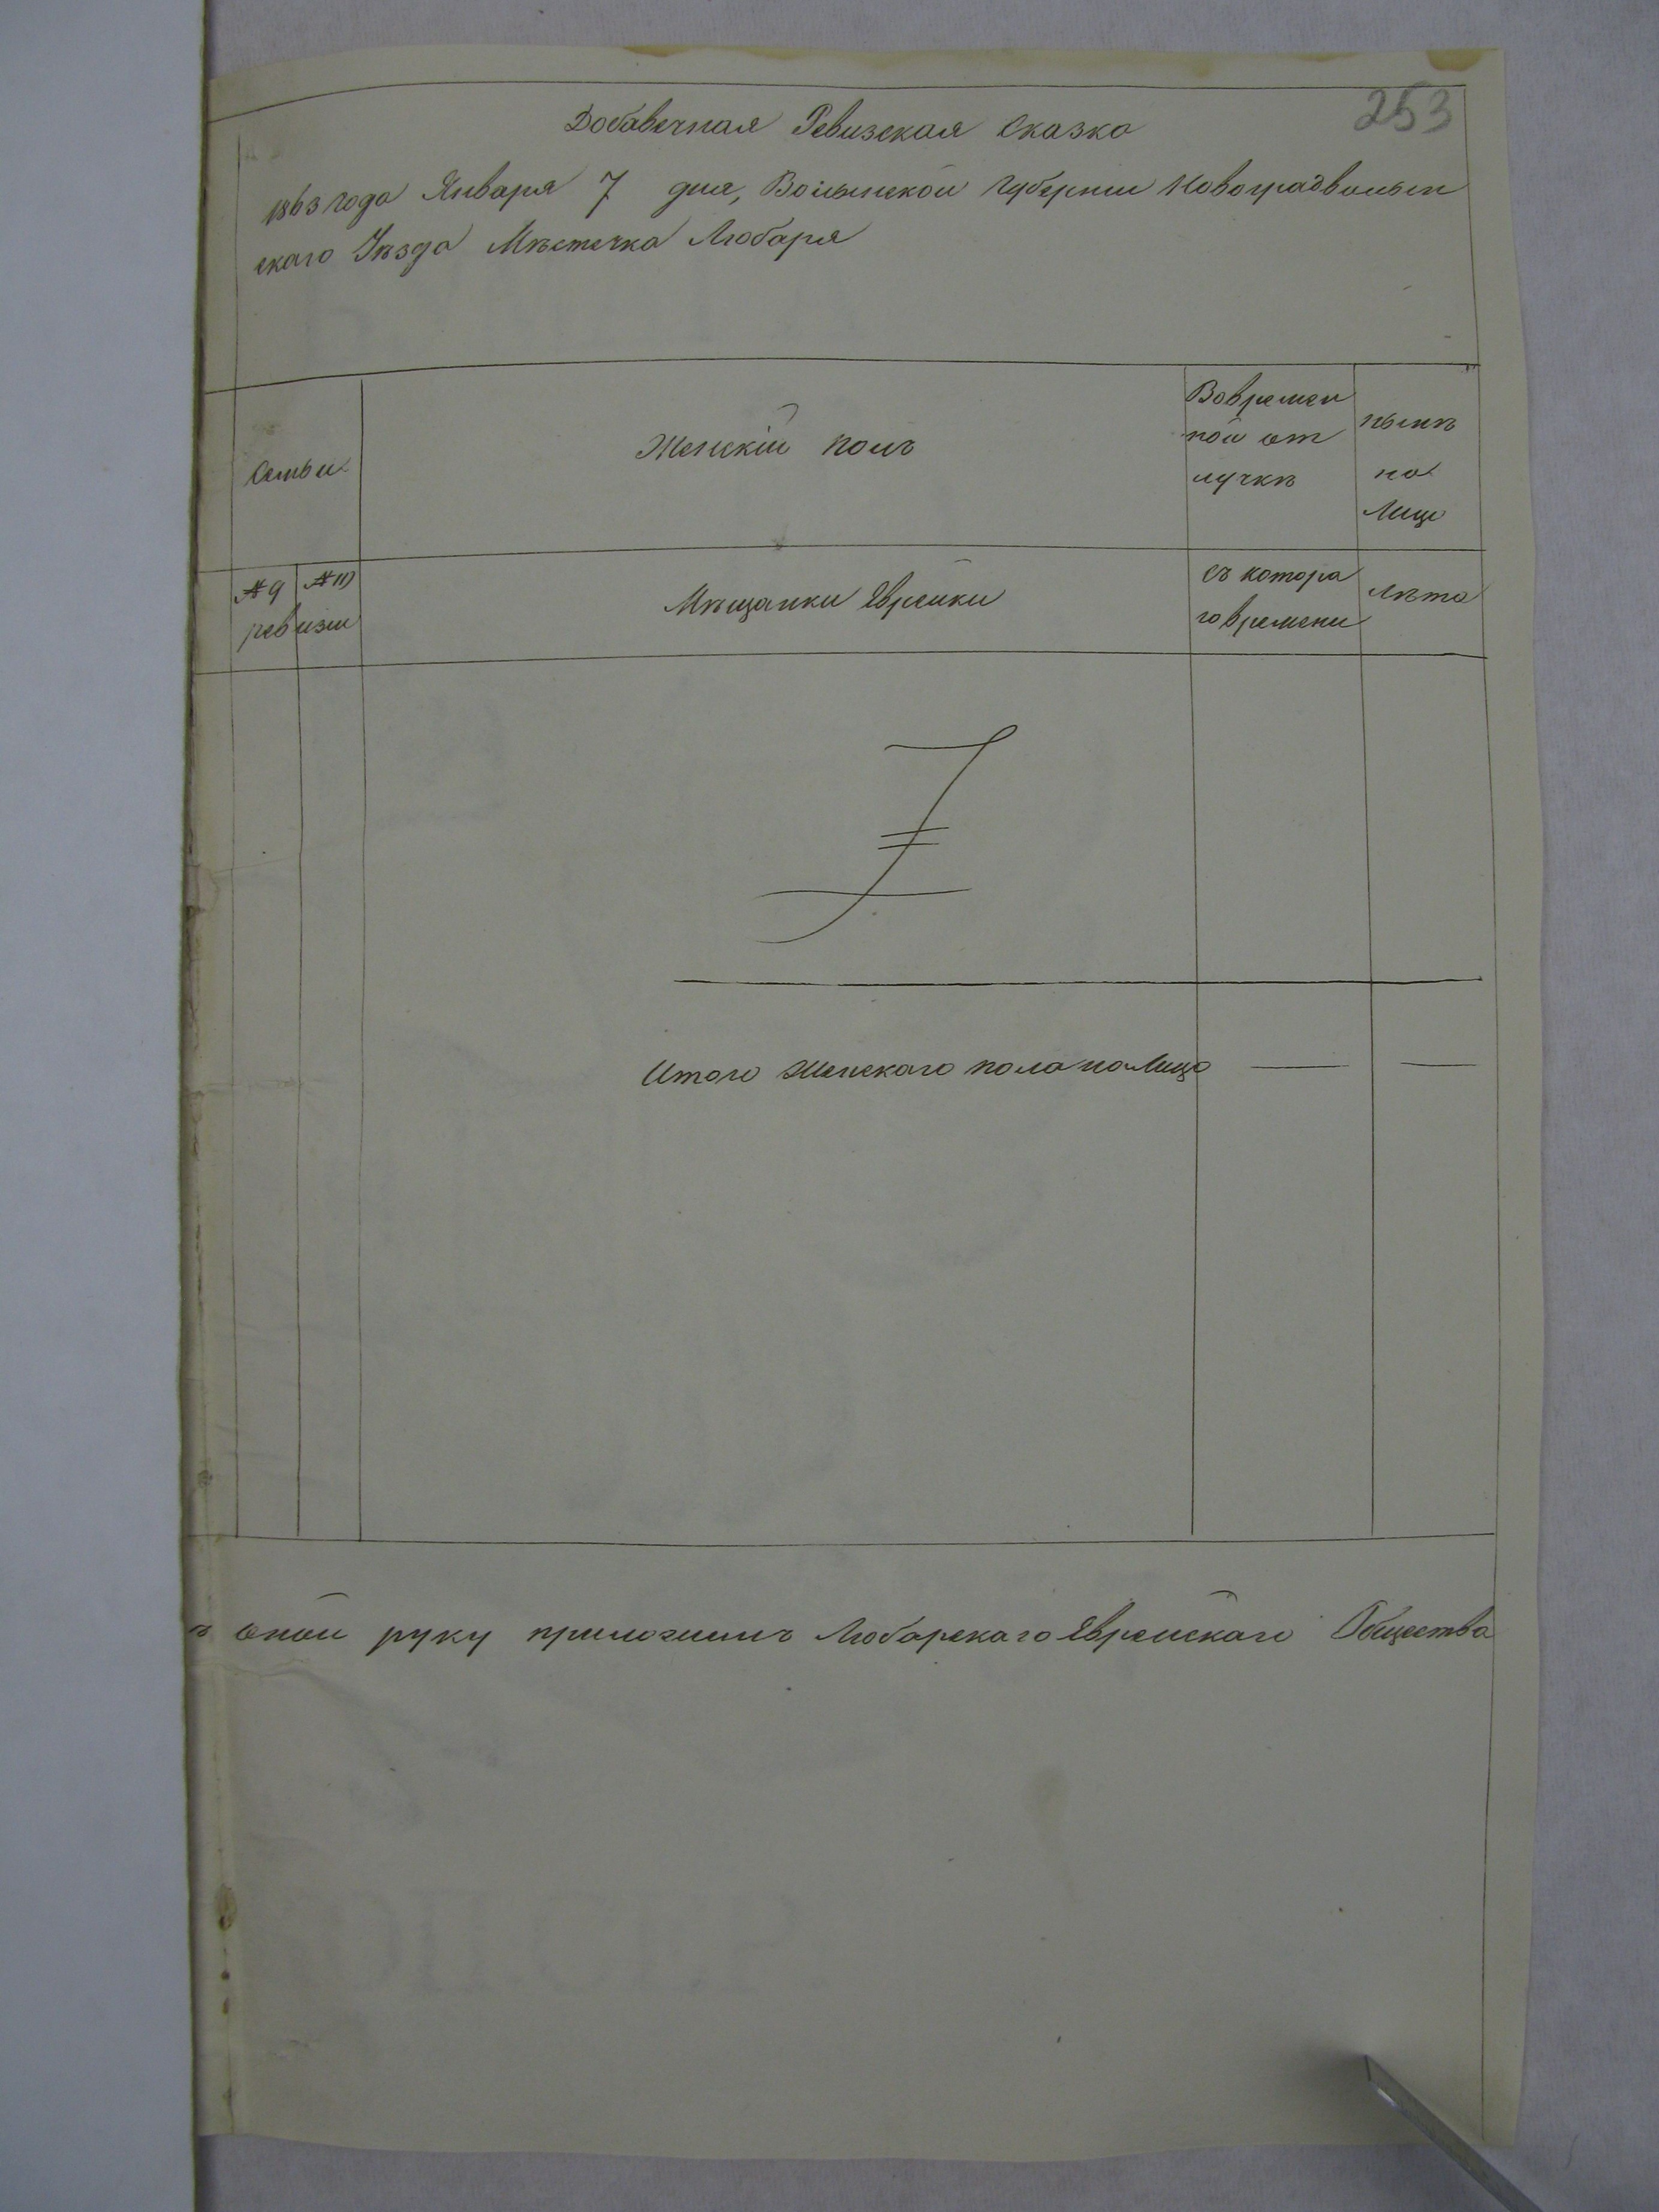 253
Добавочная Ревизская Сказка
1863 года Января 7 дня, Волынской Губернии Новоградволын
скаго Уѣзда Мѣстечка Любаря
Семьи
Женскій полъ
Вовремен
ной от
лучкѣ
нынѣ
на
Лицо
№ 9 №10
ревизіи
Мѣщанки Еврейки
съ котора
го времени
лѣта
Итого Женскаго пола на Лицо — —
ъ оной руку приложилъ Любарскаго Еврейскаго Общества